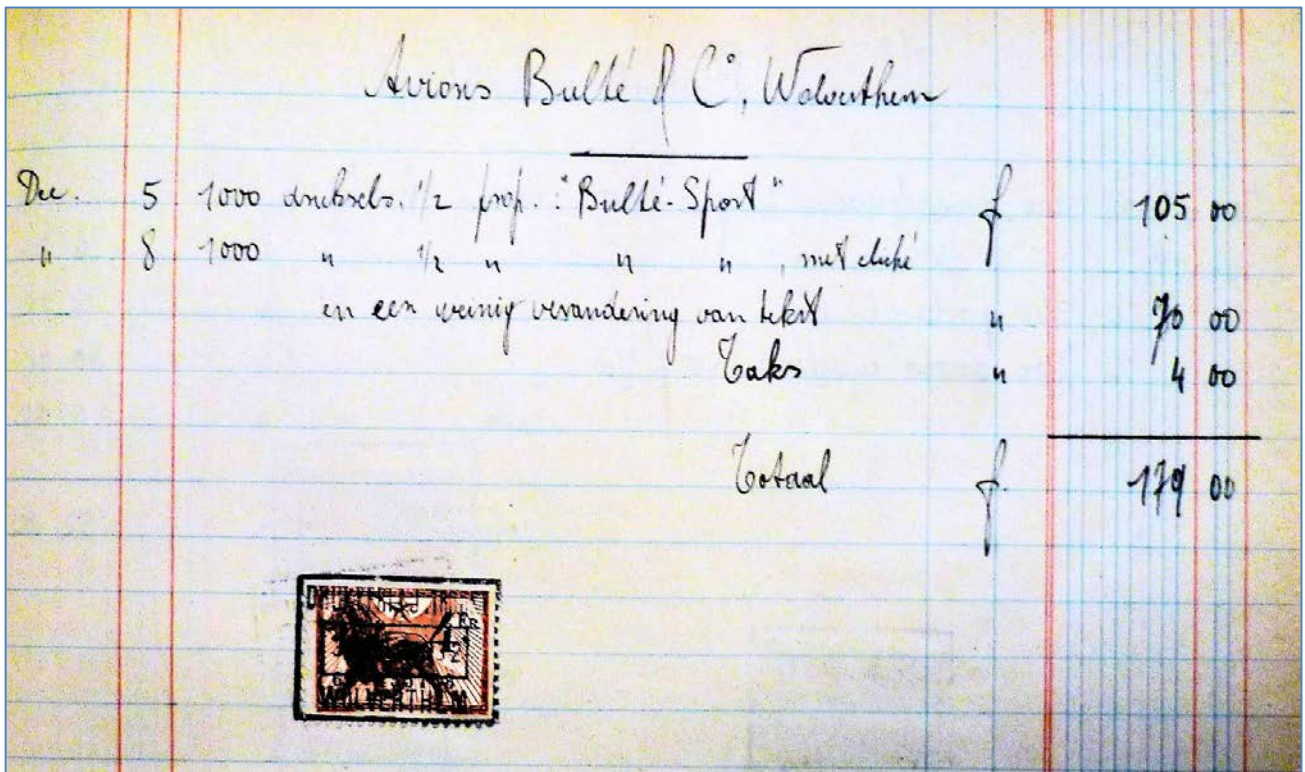 Avions Bulté & C°, Wolverthem
Dec. 5 1000 druksels, 1/2 prop. : "Bulté-Sport" f 105 00
" 8 1000 " 1/2 " " " , met cliché
en een weinig verandering van tekst " 70 00
Taks " 4 00
Totaal f. 179 00
4 FR
WOLVERTHEM